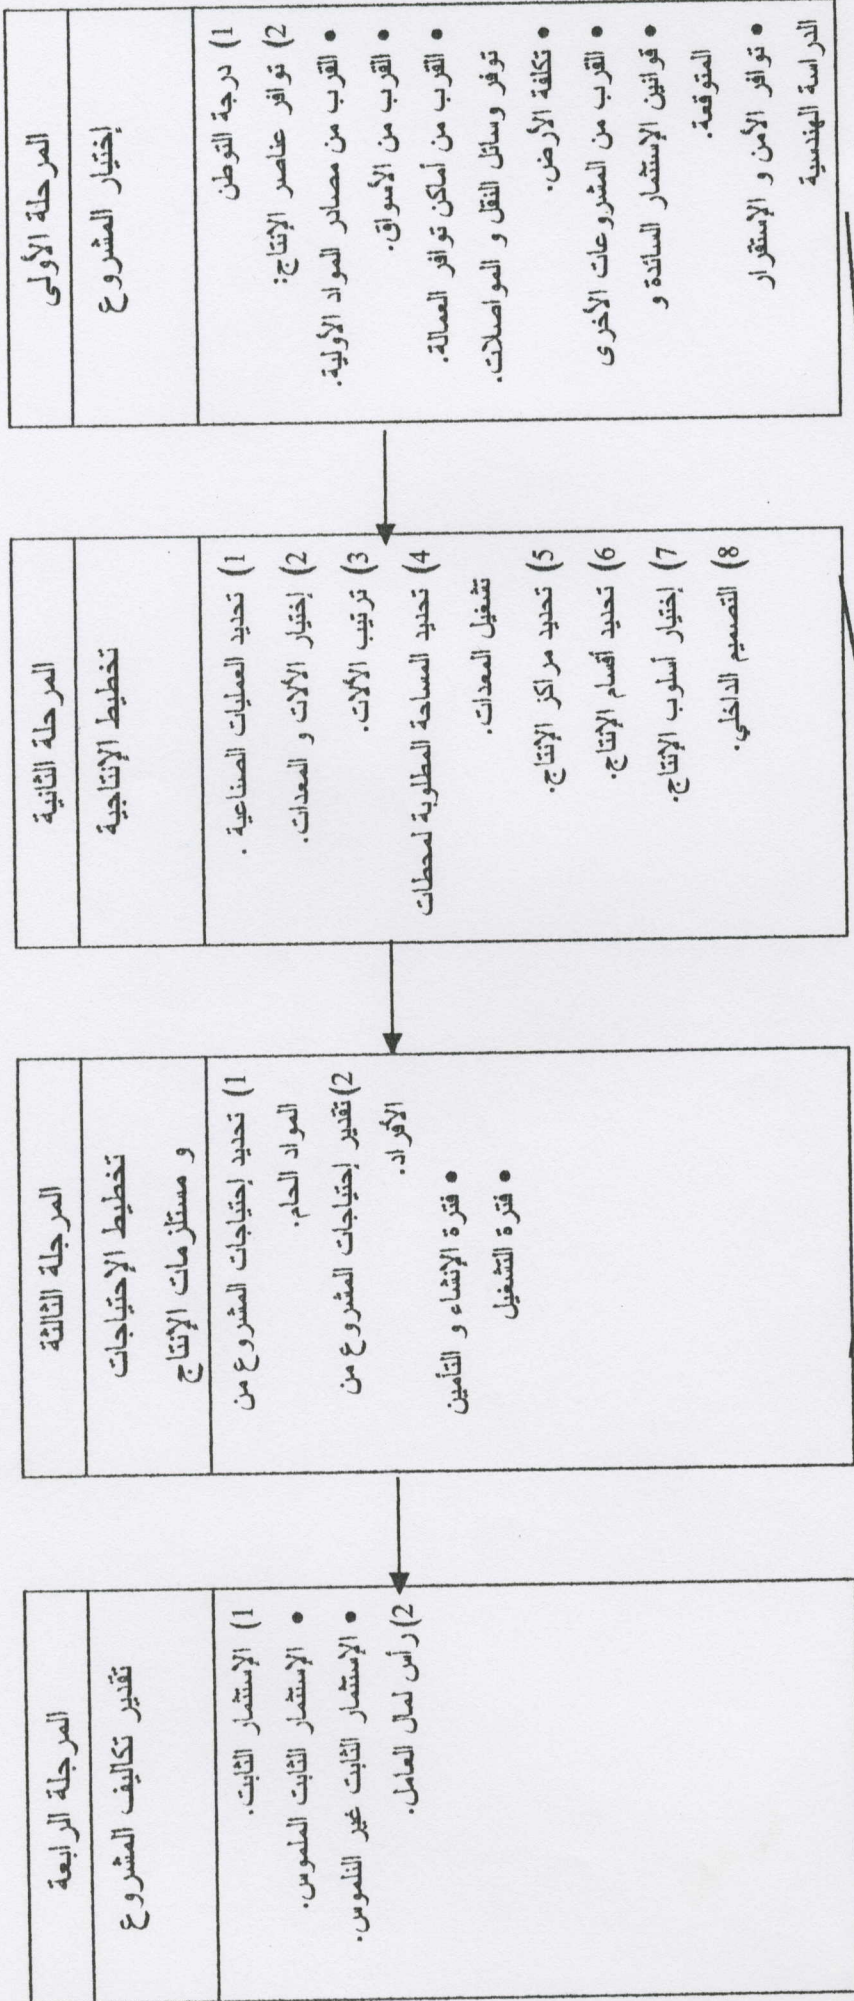 المرحلة الأولى
إختيار المشروع
1) درجة التوطن
2) توافر عناصر الإنتاج:
• القرب من مصادر المواد الأولية.
• القرب من الأسواق.
• القرب من أماكن توافر العمالة.
توفر وسائل النقل و المواصلات.
• تكلفة الأرض.
• القرب من المشروعات الأخرى
• قوانين الإستثمار السائدة و
المتوقعة.
• توافر الأمن و الإستقرار
الدراسة الهندسية
المرحلة الثانية
تخطيط الإنتاجية
1) تحديد العمليات الصناعية .
2) إختيار الألات و المعدات.
3) ترتيب الألات.
4) تحديد المساحة المطلوبة لمحطات
تشغيل المعدات.
5) تحديد مراكز الإنتاج.
6) تحديد أقسام الإنتاج.
7) إختيار أسلوب الإنتاج.
8) التصميم الداخلي.
المرجلة الثالثة
تخطيط الإحتياجات
و مستلزمات الإنتاج
1) تحديد إحتياجات المشروع من
المواد الحام.
2) تقدير إحتياجات المشروع من
الأفراد.
• فترة الإنشاء و التأمين
• فترة التشغيل
المرجلة الرابعة
تقدير تكاليف المشروع
1) الإستثمار الثابت.
• الإستثمار الثابت الملموس.
• الإستثمار الثابت غير النلموس.
2) رأس لمال العامل.